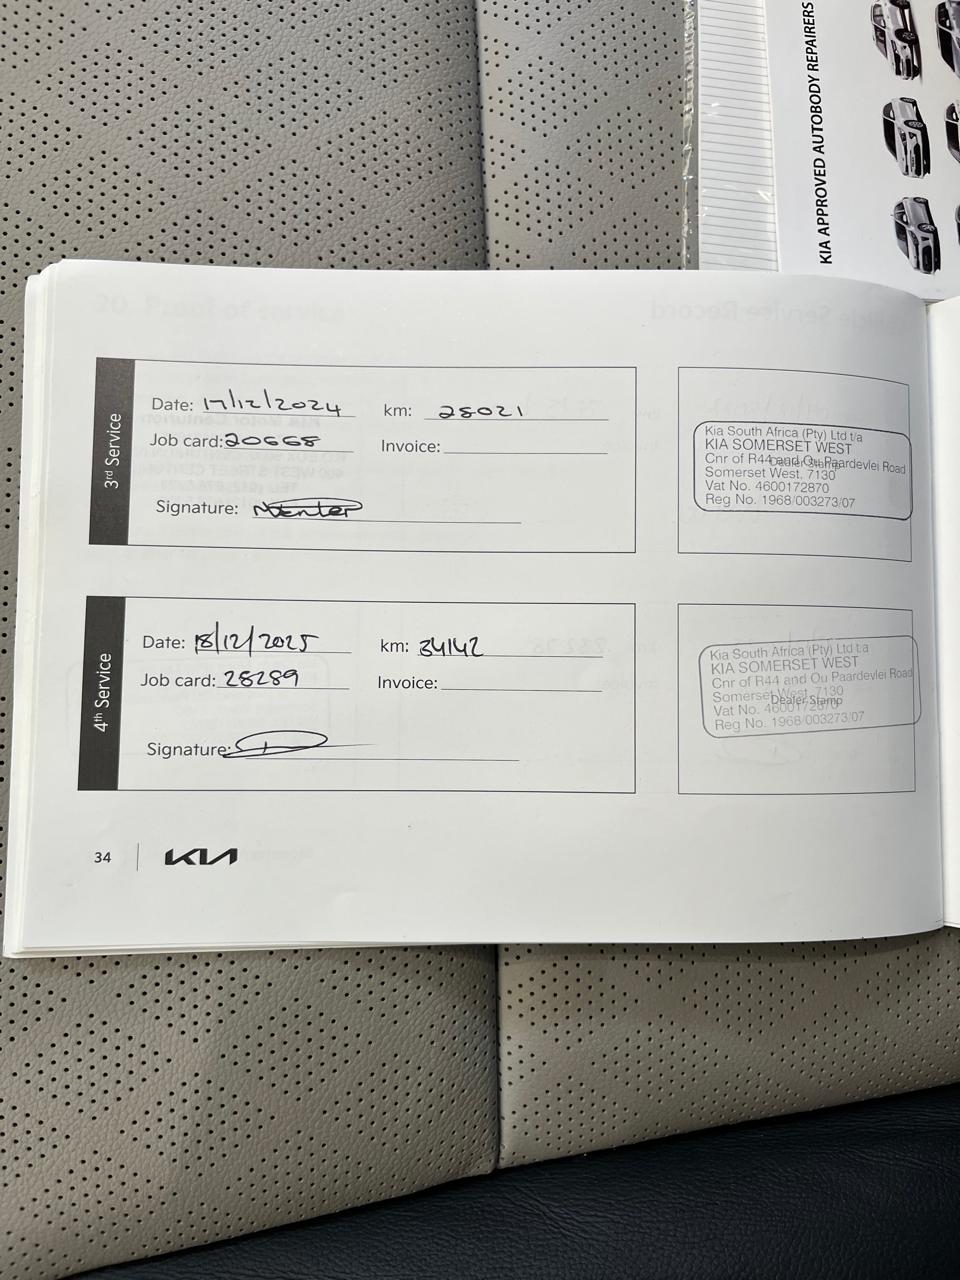 KIA APPROVED AUTOBODY REPAIRERS
3rd Service
Date: 17/12/2024 km: 28021
Job card: 20668 Invoice:
Signature:
Kia South Africa (Pty) Ltd t/a
KIA SOMERSET WEST
Cnr of R44 and Ou Paardevlei Road
Dealer Stamp
Somerset West, 7130
Vat No. 4600172870
Reg No. 1968/003273/07
4th Service
Date: 18/12/2025 km: 34142
Job card: 28289 Invoice:
Signature:
Kia South Africa (Pty) Ltd t/a
KIA SOMERSET WEST
Cnr of R44 and Ou Paardevlei Road
Somerset West, 7130
Dealer Stamp
Vat No. 4600172870
Reg No. 1968/003273/07
34 KIA